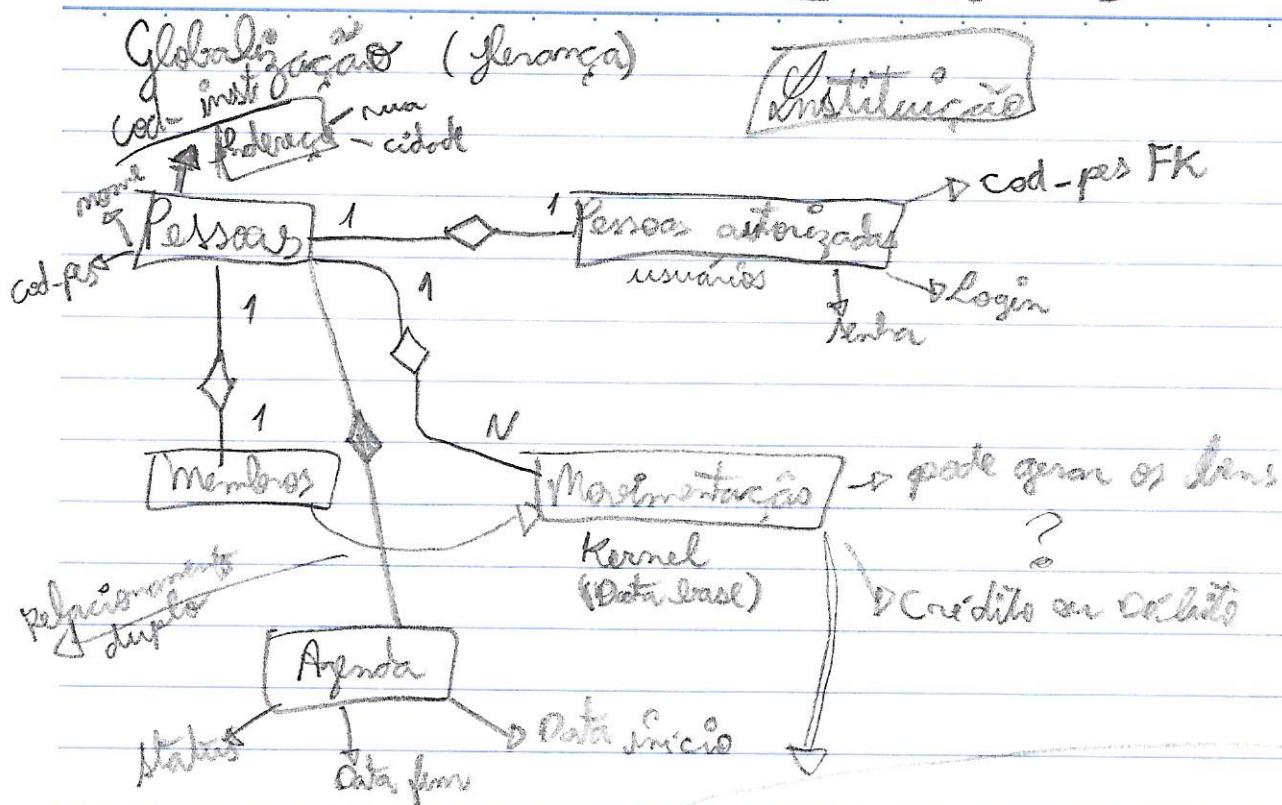 Globalização (Herança)
Instituição
cod-instituição
Endereço
rua
cidade
nome
cod-pes
Pessoas
1
1
Pessoas autorizadas
usuários
cod-pes FK
Login
senha
1
1
1
N
Membros
Movimentação
pode gerar os bens
?
Kernel
(Data base)
Crédito ou Débito
Relacionamento
duplo
Agenda
Status
Data fim
Data início